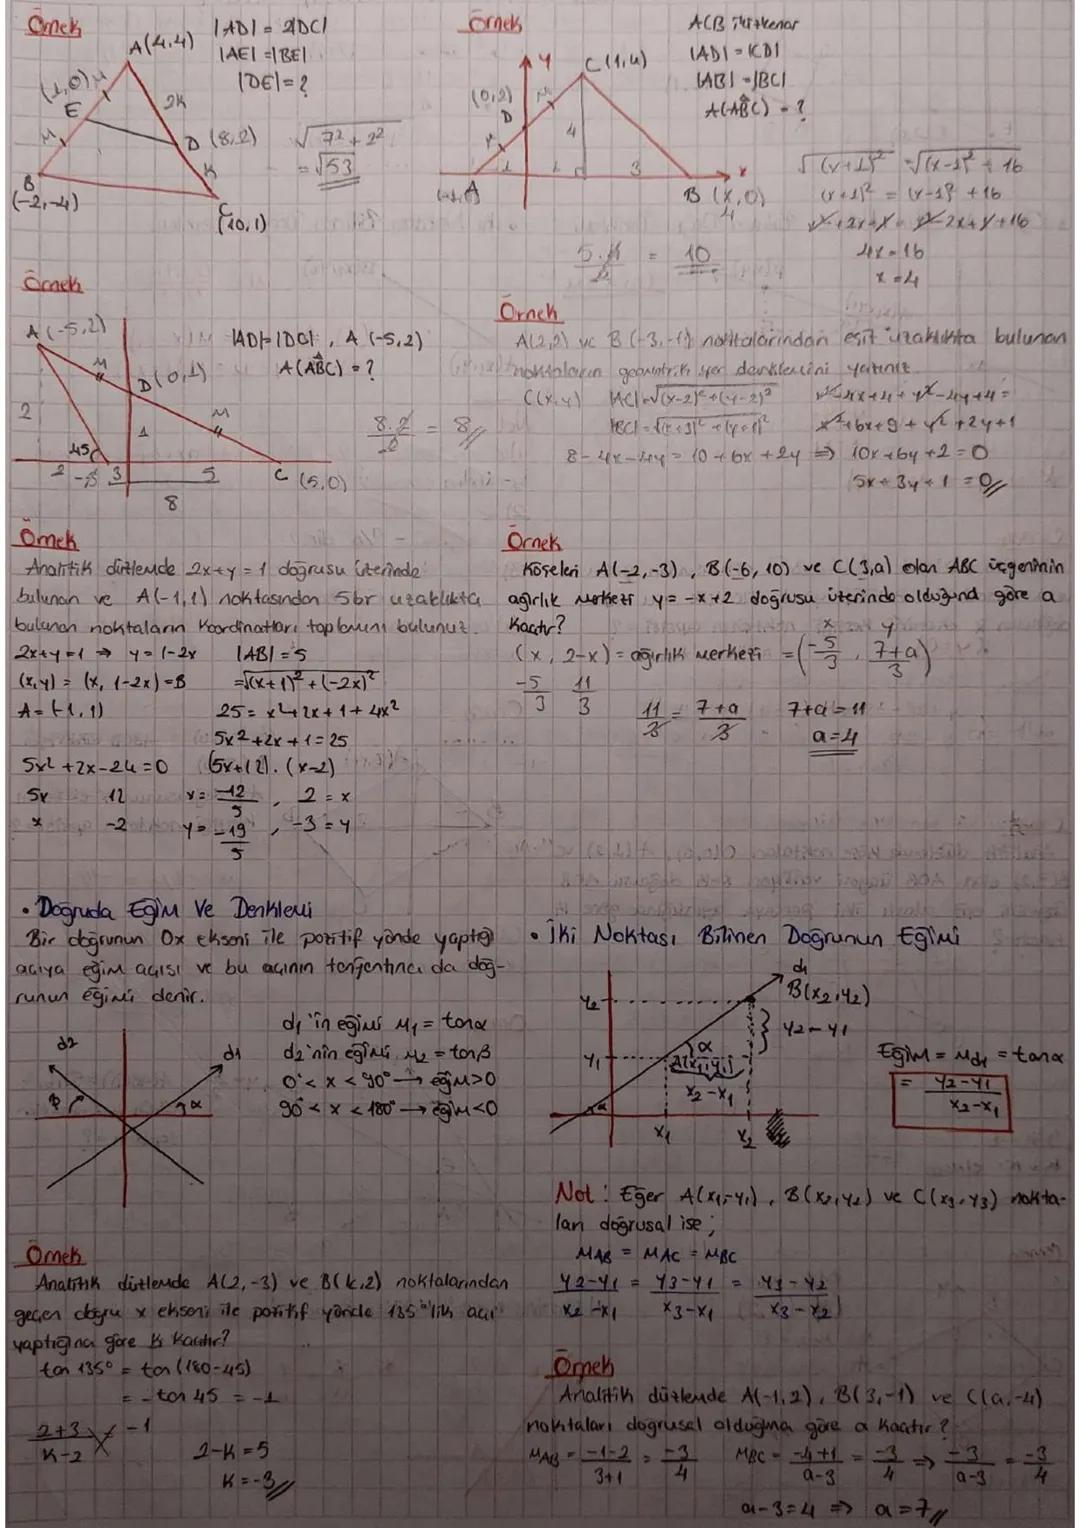 Örnek
A(4,4)
|AD| = 2|DC|
|AE| = |BE|
|DE| = ?
(1,0)
E
2k
D (8,2)
k
B
(-2,-4)
C
(10,1)
√7²+2²
= √53
Örnek
ACB ikizkenar
|AD| = |CD|
|AB| = |BC|
A(ABC) = ?
y
C(1,4)
(0,2)
D
4
1
1
3
x
A
B (x,0)
4
√(x+1)² = √(x-1)² + 16
(x+1)² = (x-1)² + 16
x²+2x+1 = x²-2x+1+16
4x=16
x=4
5.4/2 = 10
Örnek
A(-5,2)
|AD|=|DC| , A (-5,2)
A(ABC) = ?
D(0,1)
2
1
45
2 -3 3 5 C (5,0)
8
8.2/2 = 8
Örnek
A(2,2) ve B(-3,-1) noktalarından eşit uzaklıkta bulunan
noktaların geometrik yer denklemini yazınız.
C(x,y) |AC|=√(x-2)²+(y-2)² x²-4x+4+y²-4y+4=
|BC|=√(x+3)²+(y+1)² x²+6x+9+y²+2y+1
8-4x-4y = 10+6x+2y ⇒ 10x+6y+2=0
5x+3y+1=0
Örnek
Analitik düzlemde 2x+y=1 doğrusu üzerinde
bulunan ve A(-1,1) noktasından 5br uzaklıkta
bulunan noktaların koordinatları toplamını bulunuz.
2x+y=1 ⇒ y=1-2x |AB|=5
(x,y) = (x, 1-2x)=B =√(x+1)²+(-2x)²
A=(-1,1) 25= x²+2x+1+4x²
5x²+2x+1=25
5x²+2x-24=0 (5x+12).(x-2)
5x 12 x=-12/5 , 2=x
x -2 y=-19/5 , -3=y
Örnek
Köşeleri A(-2,-3) , B(-6,10) ve C(3,a) olan ABC üçgeninin
ağırlık merkezi y=-x+2 doğrusu üzerinde olduğuna göre a
kaçtır?
x y
(x, 2-x) = ağırlık merkezi = (-5/3 , 7+a/3)
-5/3 11/3
11/3 = 7+a/3 7+a=11
a=4
• Doğruda Eğim Ve Denklemi
Bir doğrunun Ox ekseni ile pozitif yönde yaptığı
açıya eğim açısı ve bu açının tanjantına da doğ-
runun eğimi denir.
d2
d1
β
α
d₁'in eğimi m₁ = tanα
d₂'nin eğimi m₂ = tanβ
0°< x < 90° → eğim>0
90°< x < 180° → eğim<0
• İki Noktası Bilinen Doğrunun Eğimi
d₁
B(x₂,y₂)
y₂
y₂-y₁
y₁
α
A(x₁,y₁)
x₂-x₁
α
x₁ x₂
Eğim = md₁ = tanα
= y₂-y₁/x₂-x₁
Not : Eğer A(x₁,y₁) , B(x₂,y₂) ve C(x₃,y₃) nokta-
ları doğrusal ise;
mAB = mAC = mBC
y₂-y₁/x₂-x₁ = y₃-y₁/x₃-x₁ = y₃-y₂/x₃-x₂
Örnek
Analitik düzlemde A(2,-3) ve B(k,2) noktalarından
geçen doğru x ekseni ile pozitif yönde 135°'lik açı
yaptığına göre k kaçtır?
tan 135° = tan(180-45)
= -tan 45 = -1
2+3/k-2 -1
2-k=5
k=-3
Örnek
Analitik düzlemde A(-1,2), B(3,-1) ve C(a,-4)
noktaları doğrusal olduğuna göre a kaçtır?
mAB = -1-2/3+1 = -3/4 mBC = -4+1/a-3 = -3/4 ⇒ -3/a-3 = -3/4
a-3=4 ⇒ a=7